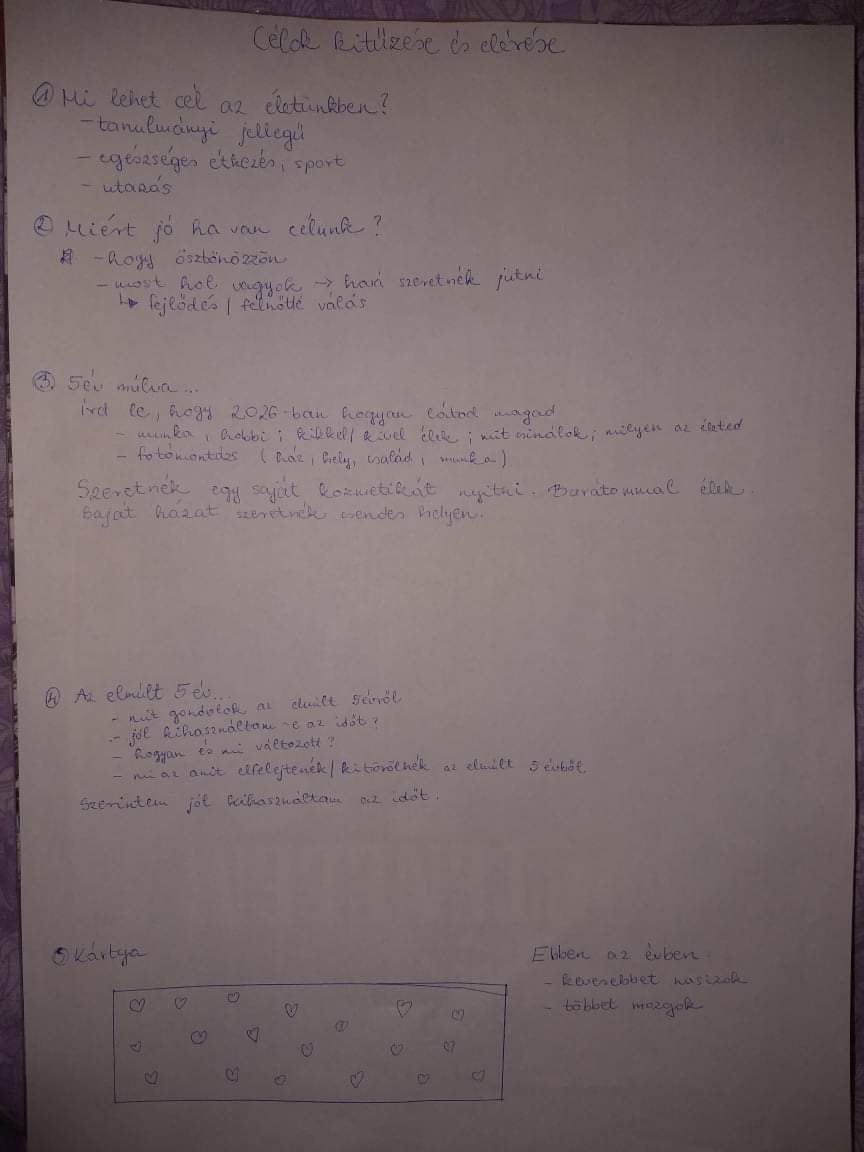 Célok kitűzése és elérése
① Mi lehet cél az életünkben?
- tanulmányi jellegű
- egészséges étkezés, sport
- utazás
② Miért jó ha van célunk?
- hogy ösztönözzön
- most hol vagyok → hová szeretnék jutni
↳ fejlődés / felnőtté válás
③ 5 év múlva...
Írd le, hogy 2026-ban hogyan látod magad
- munka, hobbi; kikkel/kivel élek; mit csinálok; milyen az életed
- fotómontázs (ház, hely, család, munka)
Szeretnék egy saját kozmetikát nyitni. Barátommal élek.
Saját házat szeretnék csendes helyen.
④ Az elmúlt 5 év...
- mit gondolok az elmúlt 5 évről
- jól kihasználtam-e az időt?
- hogyan és mi változott?
- mi az amit elfelejtenék/kitörölnék az elmúlt 5 évből
Szerintem jól kihasználtam az időt.
⑤ Kártya
Ebben az évben:
- kevesebbet nasizok
- többet mozgok